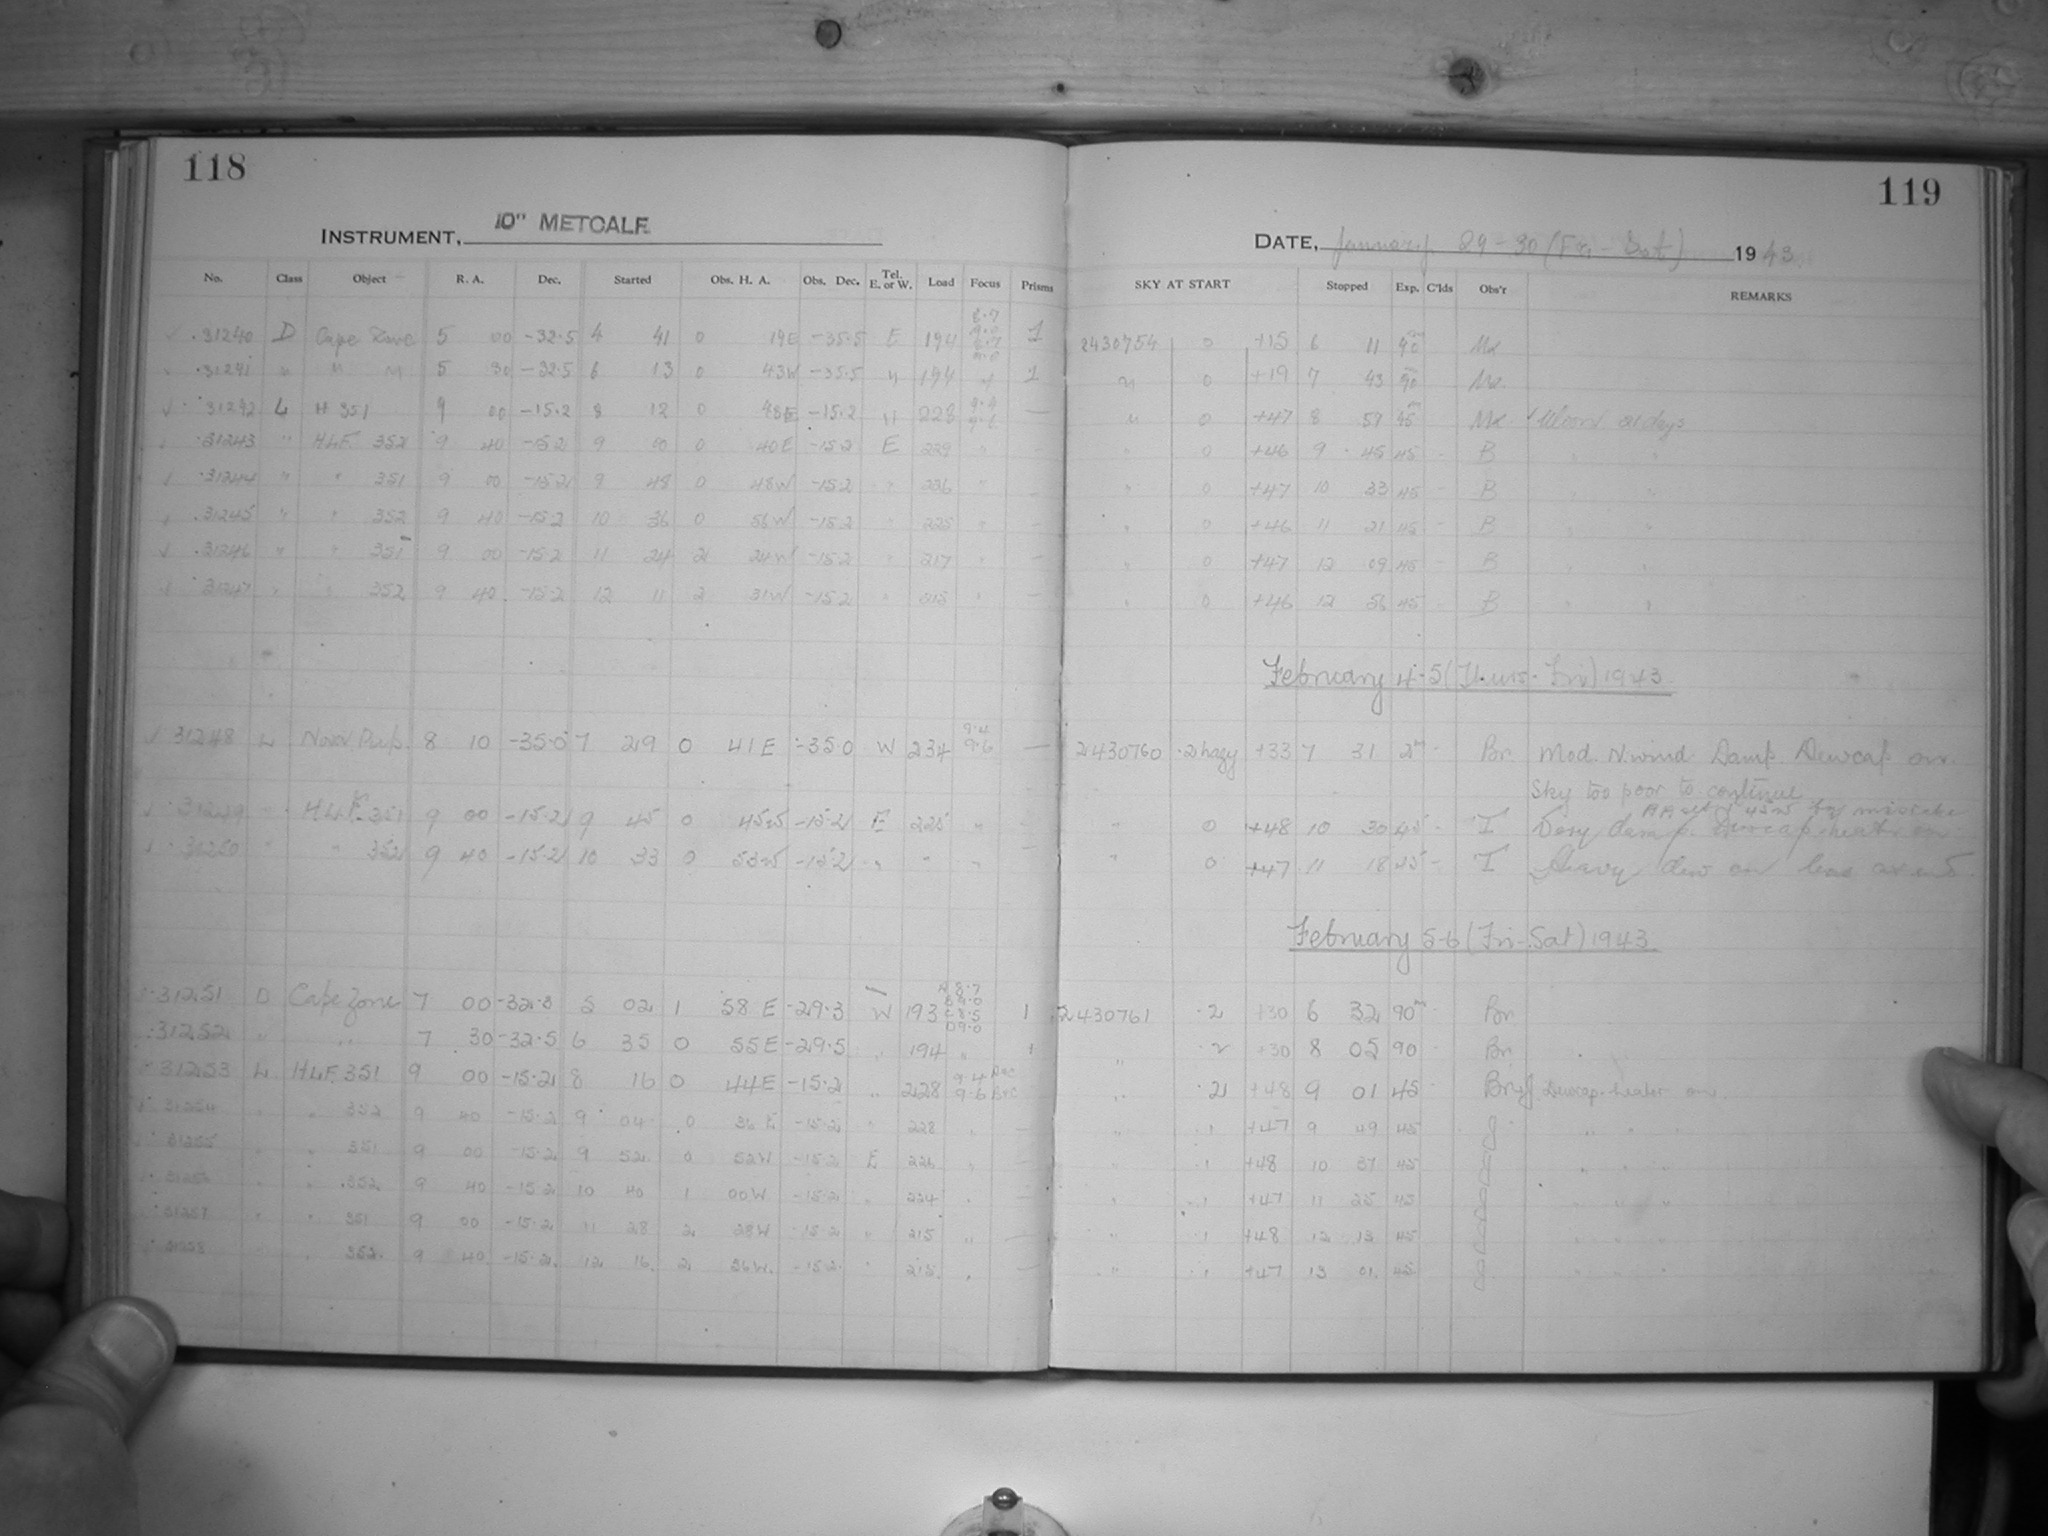 118
INSTRUMENT, 10" METCALF
No. Class Object R. A. Dec. Started Obs. H. A. Obs. Dec. Tel. E. or W. Load Focus Prisms
31240 D Cape Zone 5 00 -32.5 4 41 0 19E -35.5 E 194 1
31241 " " " 5 30 -32.5 6 13 0 43W -35.5 " 194 " 1
31242 L H 351 9 00 -15.2 8 12 0 48E -15.2 " 228 —
31243 " H.L.F. 352 9 40 -15.2 9 00 0 40E -15.2 E 229 " —
31244 " " 351 9 00 -15.2 9 48 0 48W -15.2 " 226 " —
31245 " " 352 9 40 -15.2 10 36 0 56W -15.2 " 225 " —
31246 " " 351 9 00 -15.2 11 24 2 24W -15.2 " 217 " —
31247 " " 352 9 40 -15.2 12 11 2 31W -15.2 " 215 " —
31248 L Nova Pup. 8 10 -35.0 7 29 0 41E -35.0 W 234 9.4 9.6 —
31249 " H.L.F. 351 9 00 -15.2 9 45 0 45W -15.2 E 225 " —
" " 352 9 40 -15.2 10 33 0 53W -15.2 " " " —
31251 D Cape Zone 7 00 -32.8 5 02 1 58E -29.3 W 193 A 8.7 B 9.0 C 8.5 D 9.0 1
31252 " " 7 30 -32.5 6 35 0 55E -29.5 " 194 " 1
31253 L H.L.F. 351 9 00 -15.2 8 16 0 44E -15.2 " 228 9.4 A+C 9.6 B+C
31254 " " 352 9 40 -15.2 9 04 0 36E -15.2 " 228 " —
31255 " " 351 9 00 -15.2 9 52 0 52W -15.2 E 226 " —
31256 " " 352 9 40 -15.2 10 40 1 00W -15.2 " 224 " —
31257 " " 351 9 00 -15.2 11 28 2 28W -15.2 " 215 " —
31258 " 352 9 40 -15.2 12 16 2 36W -15.2 " 215 " —
119
DATE, January 29-30 (Fri-Sat) 1943
SKY AT START Stopped Exp. C'lds Obs'r REMARKS
2430754 0 +15 6 11 90 Mx
" 0 +19 7 43 90 Mx
" 0 +47 8 57 45 Mx Moon
" 0 +46 9 45 45 - B " "
" 0 +47 10 33 45 - B " "
" 0 +46 11 21 45 - B " "
" 0 +47 12 09 45 - B " "
" 0 +46 12 56 45 - B " "
February 4-5 (Thurs-Fri) 1943
2430760 .2 hazy +33 7 31 2m - Br Mod. N. wind. Damp. Dewcap on.
Sky too poor to continue
RA set 45m by mistake
" 0 +48 10 30 45 - T Very damp. Dewcap heater on
" 0 +47 11 18 45 - T Heavy dew on lens at end.
February 5-6 (Fri-Sat) 1943
2430761 .2 +30 6 32 90m - Br
" .2 +30 8 05 90 - Br
" .2 +48 9 01 45 - Dewcap-heater on.
" .1 +47 9 49 45 J " " "
" .1 +48 10 37 45 " " "
" .1 +47 11 25 45 " " "
" .1 +48 12 13 45 " " "
" .1 +47 13 01 45 " " "